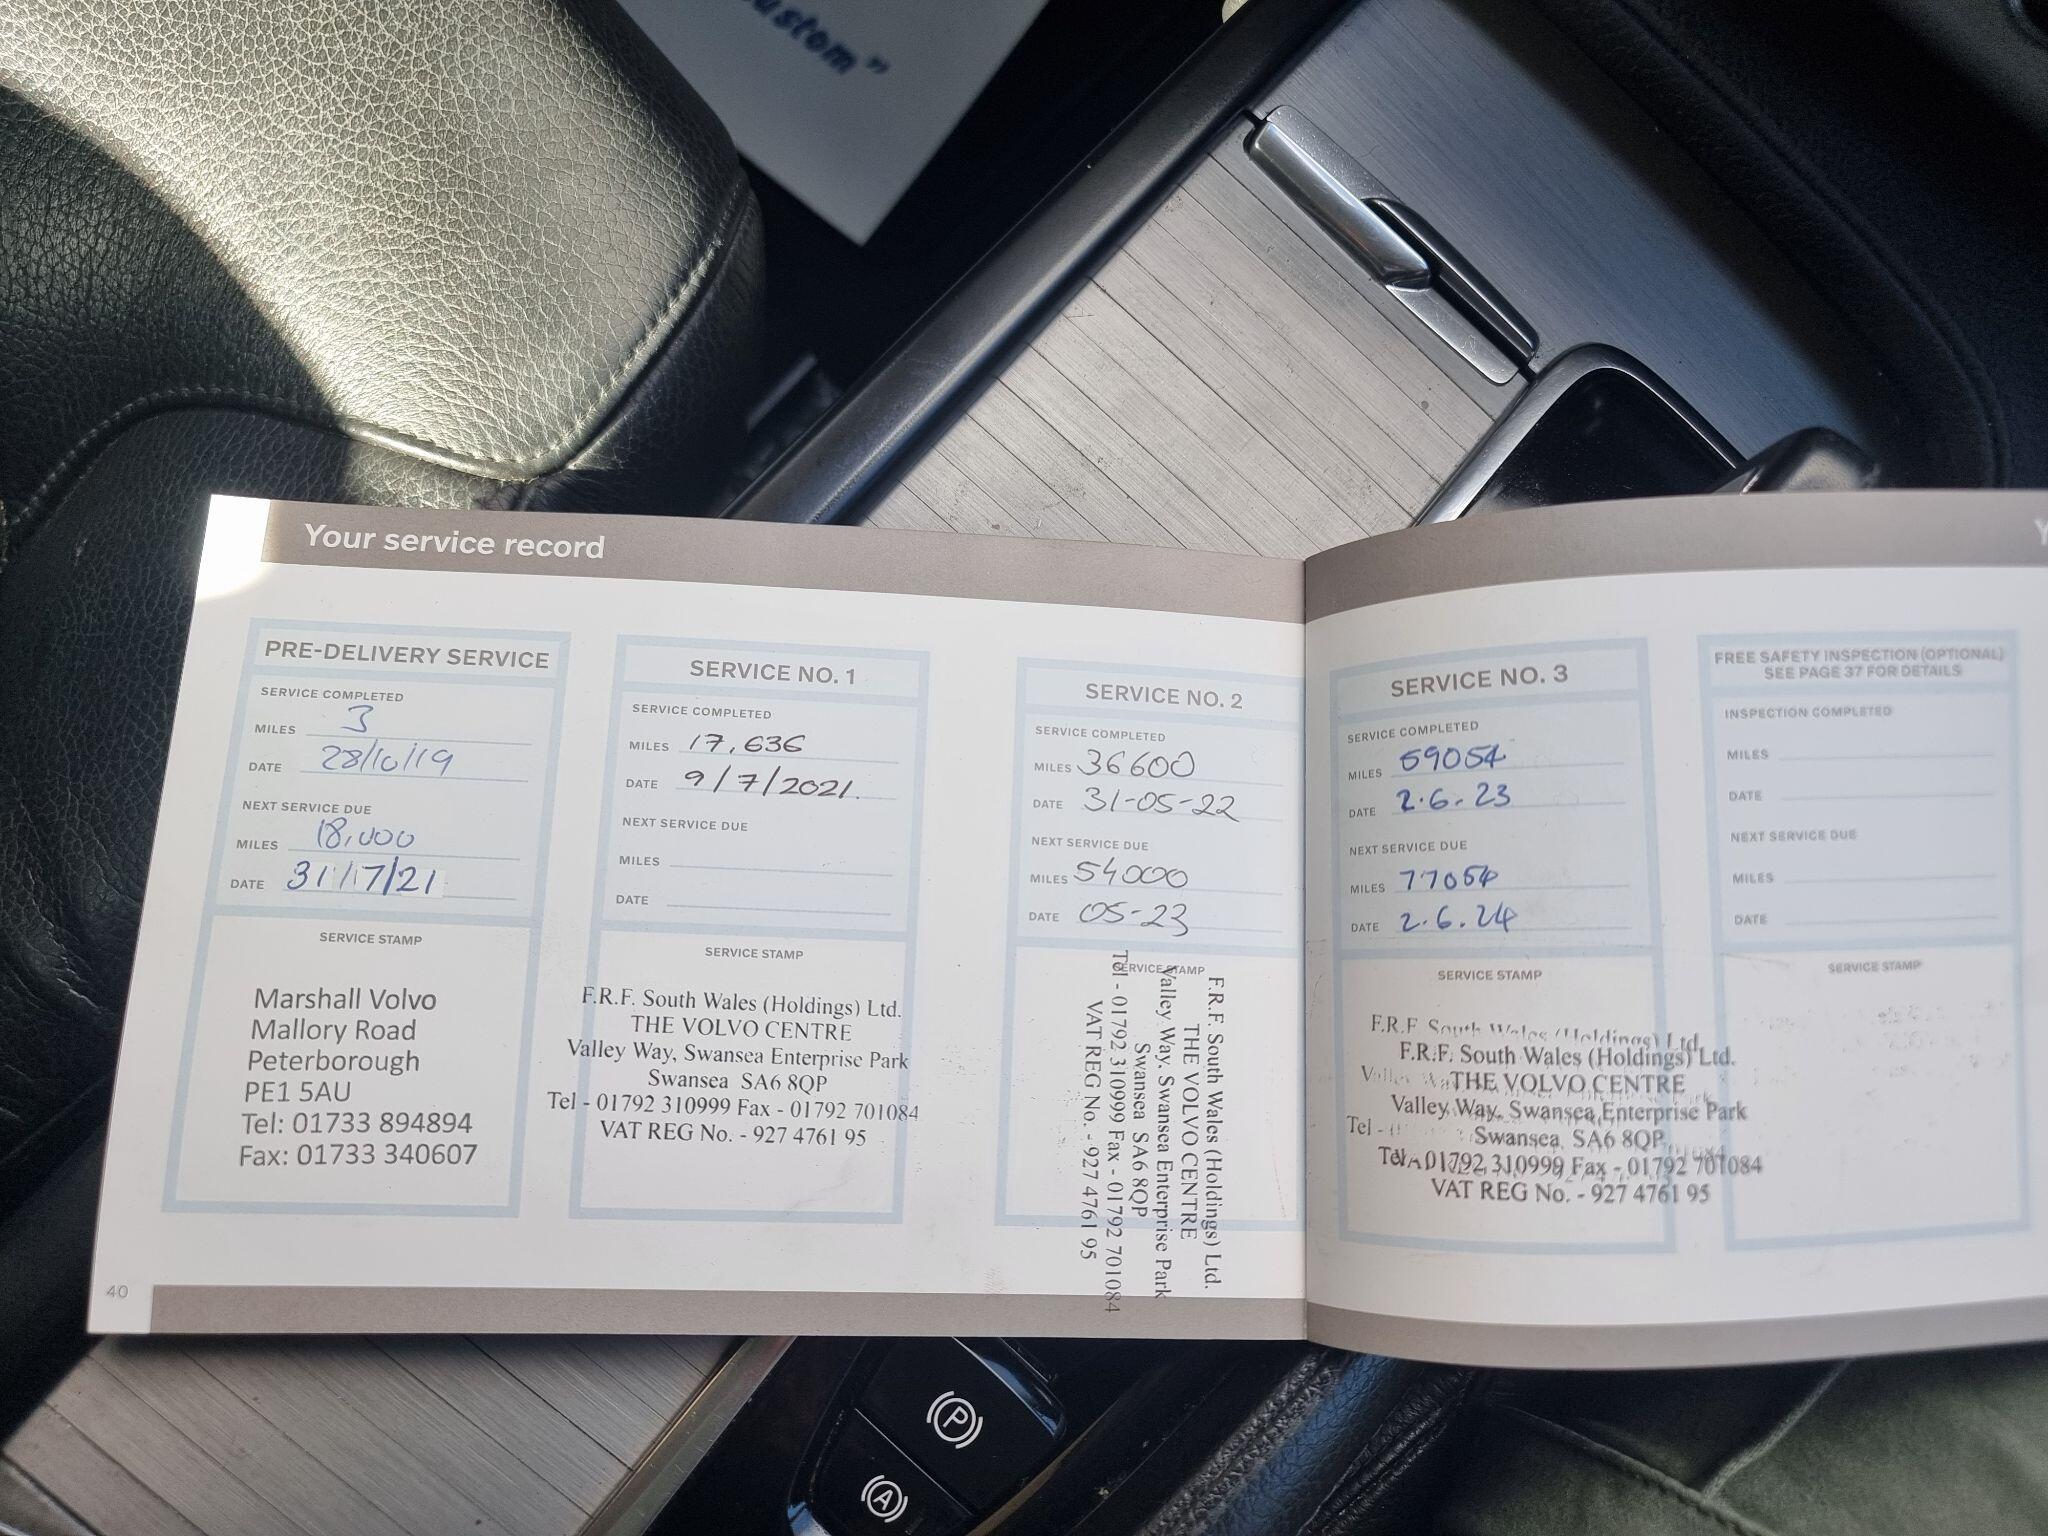 ustom"
Your service record
PRE-DELIVERY SERVICE
SERVICE COMPLETED
MILES 3
DATE 28/10/19
NEXT SERVICE DUE
MILES 18,000
DATE 31/7/21
SERVICE STAMP
Marshall Volvo
Mallory Road
Peterborough
PE1 5AU
Tel: 01733 894894
Fax: 01733 340607
40
SERVICE NO. 1
SERVICE COMPLETED
MILES 17,636
DATE 9/7/2021.
NEXT SERVICE DUE
MILES
DATE
SERVICE STAMP
F.R.F. South Wales (Holdings) Ltd.
THE VOLVO CENTRE
Valley Way, Swansea Enterprise Park
Swansea SA6 8QP
Tel - 01792 310999 Fax - 01792 701084
VAT REG No. - 927 4761 95
SERVICE NO. 2
SERVICE COMPLETED
MILES 36600
DATE 31-05-22
NEXT SERVICE DUE
MILES 54000
DATE 05-23
SERVICE STAMP
F.R.F. South Wales (Holdings) Ltd.
THE VOLVO CENTRE
Valley Way, Swansea Enterprise Park
Swansea SA6 8QP
Tel - 01792 310999 Fax - 01792 701084
VAT REG No. - 927 4761 95
Y
SERVICE NO. 3
SERVICE COMPLETED
MILES 59054
DATE 2.6.23
NEXT SERVICE DUE
MILES 77054
DATE 2.6.24
SERVICE STAMP
F.R.F. South Wales (Holdings) Ltd.
F.R.F. South Wales (Holdings) Ltd.
THE VOLVO CENTRE
Valley Way, Swansea Enterprise Park
Swansea SA6 8QP
Tel - 01792 310999 Fax - 01792 701084
VAT REG No. - 927 4761 95
FREE SAFETY INSPECTION (OPTIONAL)
SEE PAGE 37 FOR DETAILS
INSPECTION COMPLETED
MILES
DATE
NEXT SERVICE DUE
MILES
DATE
SERVICE STAMP
P
A